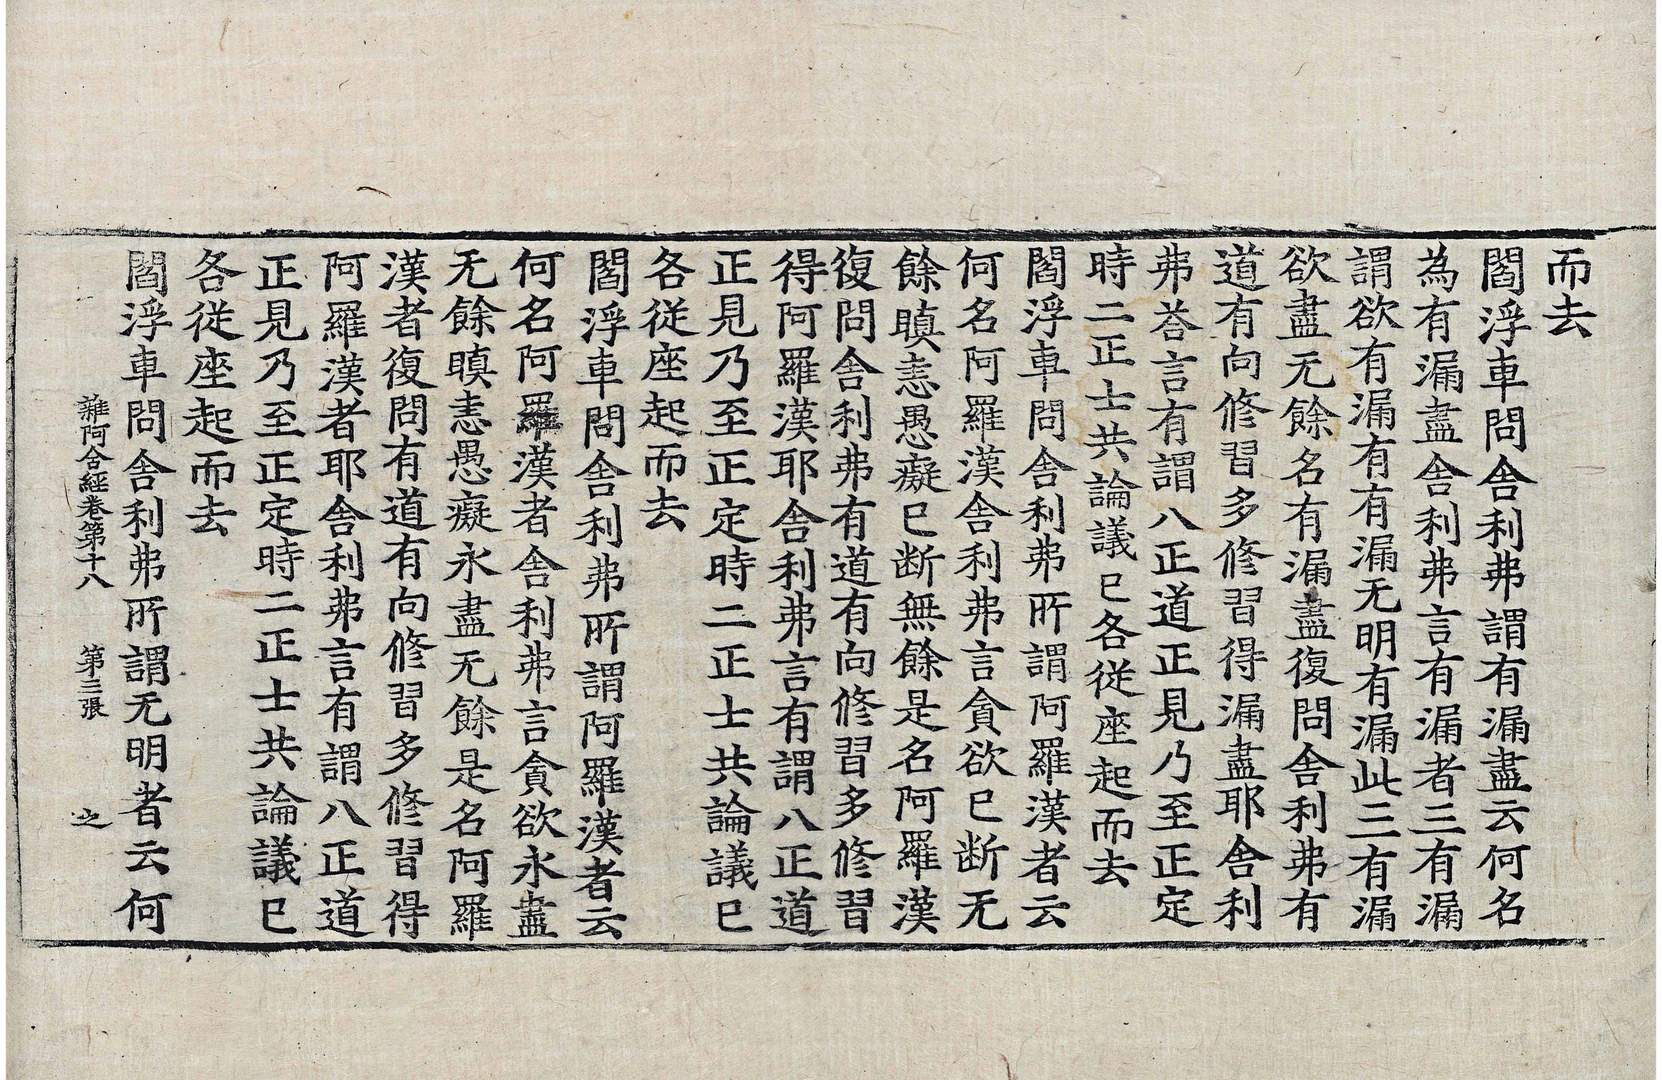 而去
閻浮車問舍利弗謂有漏盡云何名
為有漏盡舍利弗言有漏者三有漏
謂欲有漏有有漏无明有漏此三有漏
欲盡无餘名有漏盡復問舍利弗有
道有向修習多修習得漏盡耶舍利
弗荅言有謂八正道正見乃至正定
時二正士共論議已各從座起而去
閻浮車問舍利弗所謂阿羅漢者云
何名阿羅漢舍利弗言貪欲已断无
餘瞋恚愚癡已断無餘是名阿羅漢
復問舍利弗有道有向修習多修習
得阿羅漢耶舍利弗言有謂八正道
正見乃至正定時二正士共論議已
各從座起而去
閻浮車問舍利弗所謂阿羅漢者云
何名阿羅漢者舍利弗言貪欲永盡
无餘瞋恚愚癡永盡无餘是名阿羅
漢者復問有道有向修習多修習得
阿羅漢者耶舍利弗言有謂八正道
正見乃至正定時二正士共論議已
各從座起而去
閻浮車問舍利弗所謂无明者云何
雜阿含経卷第十八 第三張 之